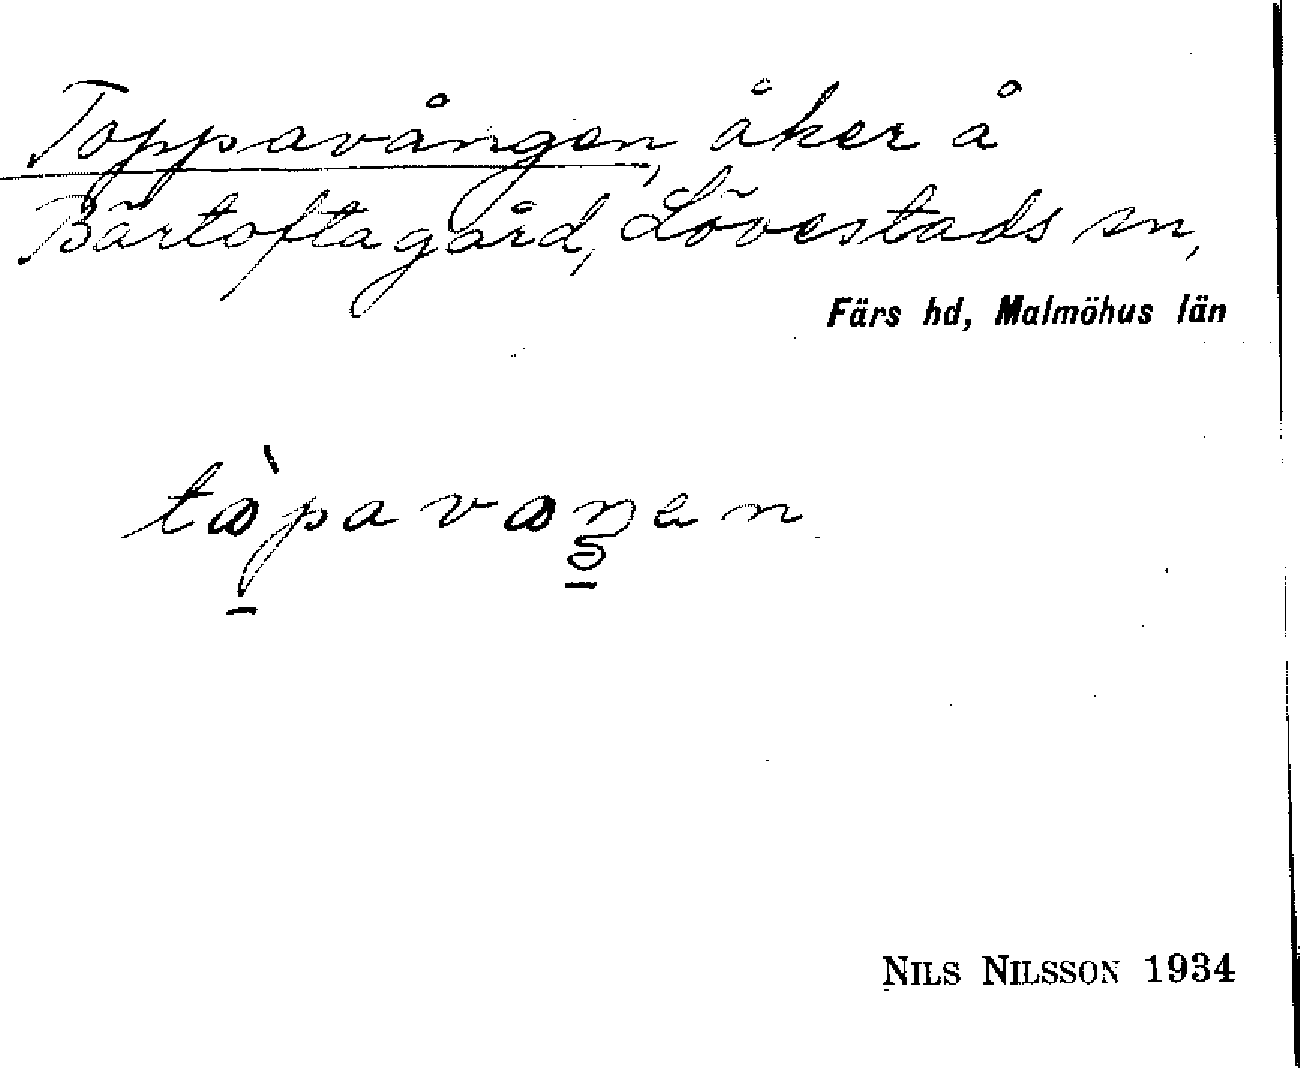 Toppavången, åker å
Bärtoftagård, Lövestads sn,
Färs hd, Malmöhus län
NILS NILSSON 1934